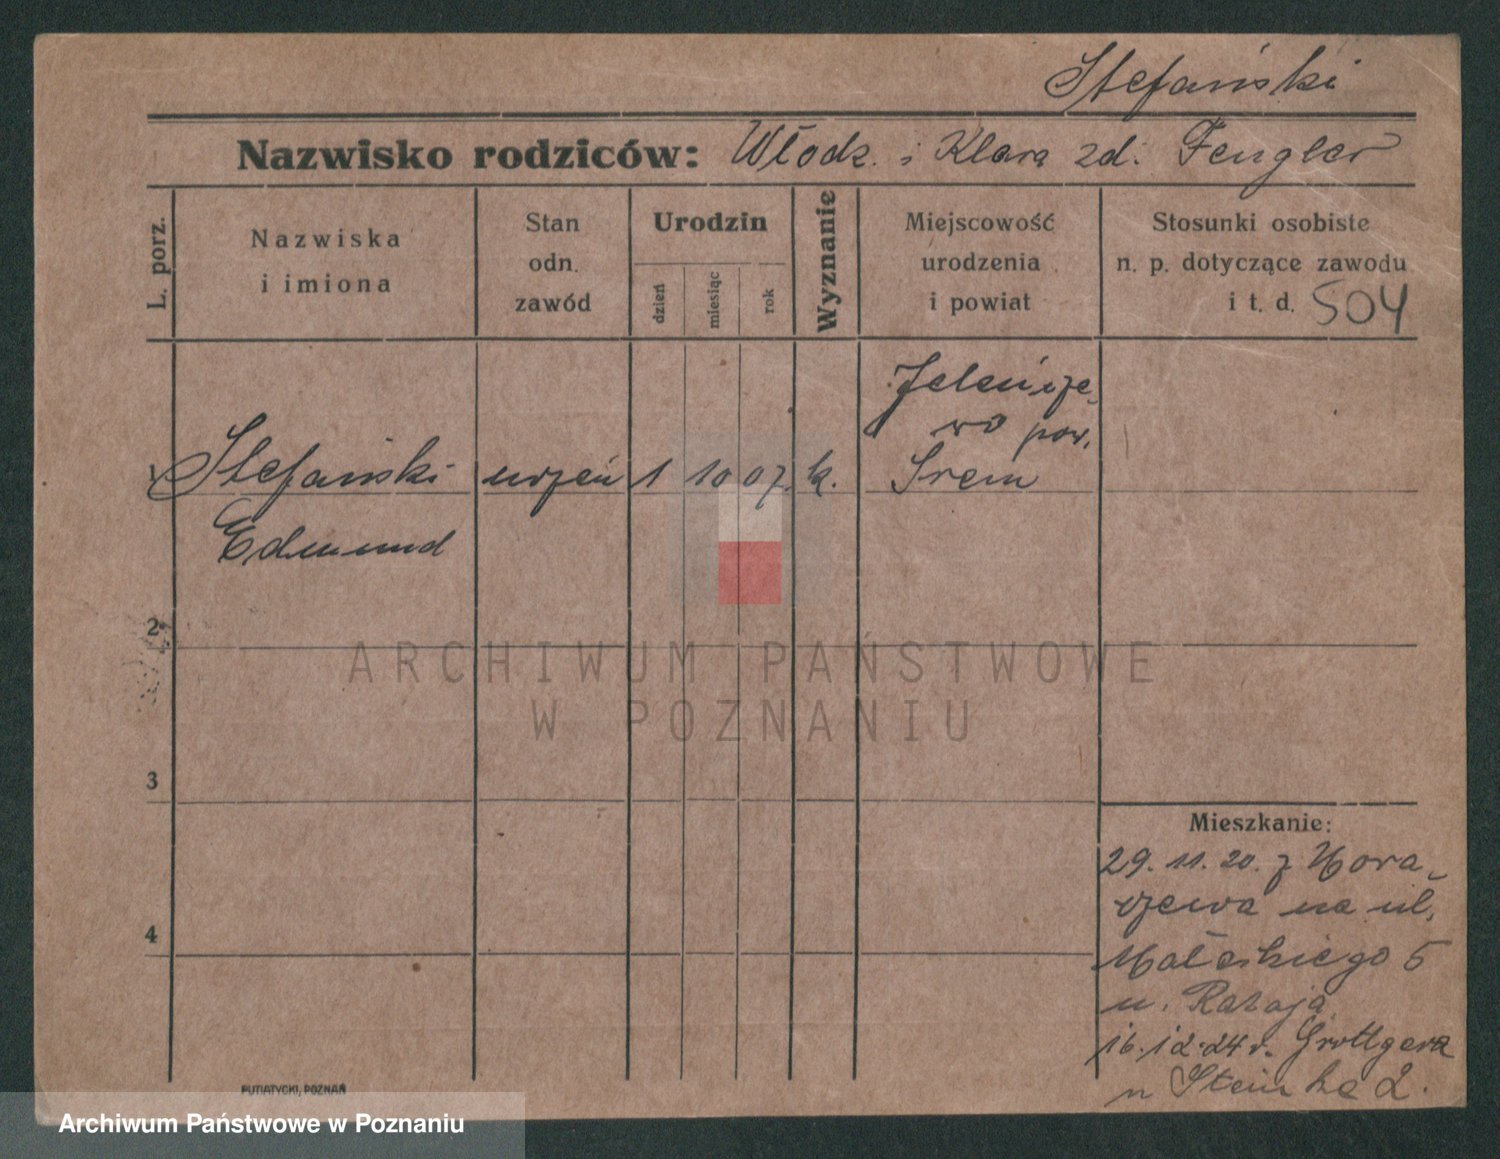 Stefański
Nazwisko rodziców: Włodz. i Klara zd. Fengler
L. porz.
Nazwiska
i imiona
Stan
odn.
zawód
Urodzin
dzień
miesiąc
rok
Wyznanie
Miejscowość
urodzenia
i powiat
Stosunki osobiste
n. p. dotyczące zawodu
i t. d. 504
1 Stefański uczeń 1 10 07. k.
Edmund
Jeleńcze-
wo pow.
Śrem
2
3
4
Mieszkanie:
29. 11. 20. z
na ul.
Małeckiego 5
u. Rataja
16.12.24 r. Grottgera
u 2.
PUTIATYCKI, POZNAŃ
ARCHIWUM PAŃSTWOWE
W POZNANIU
Archiwum Państwowe w Poznaniu